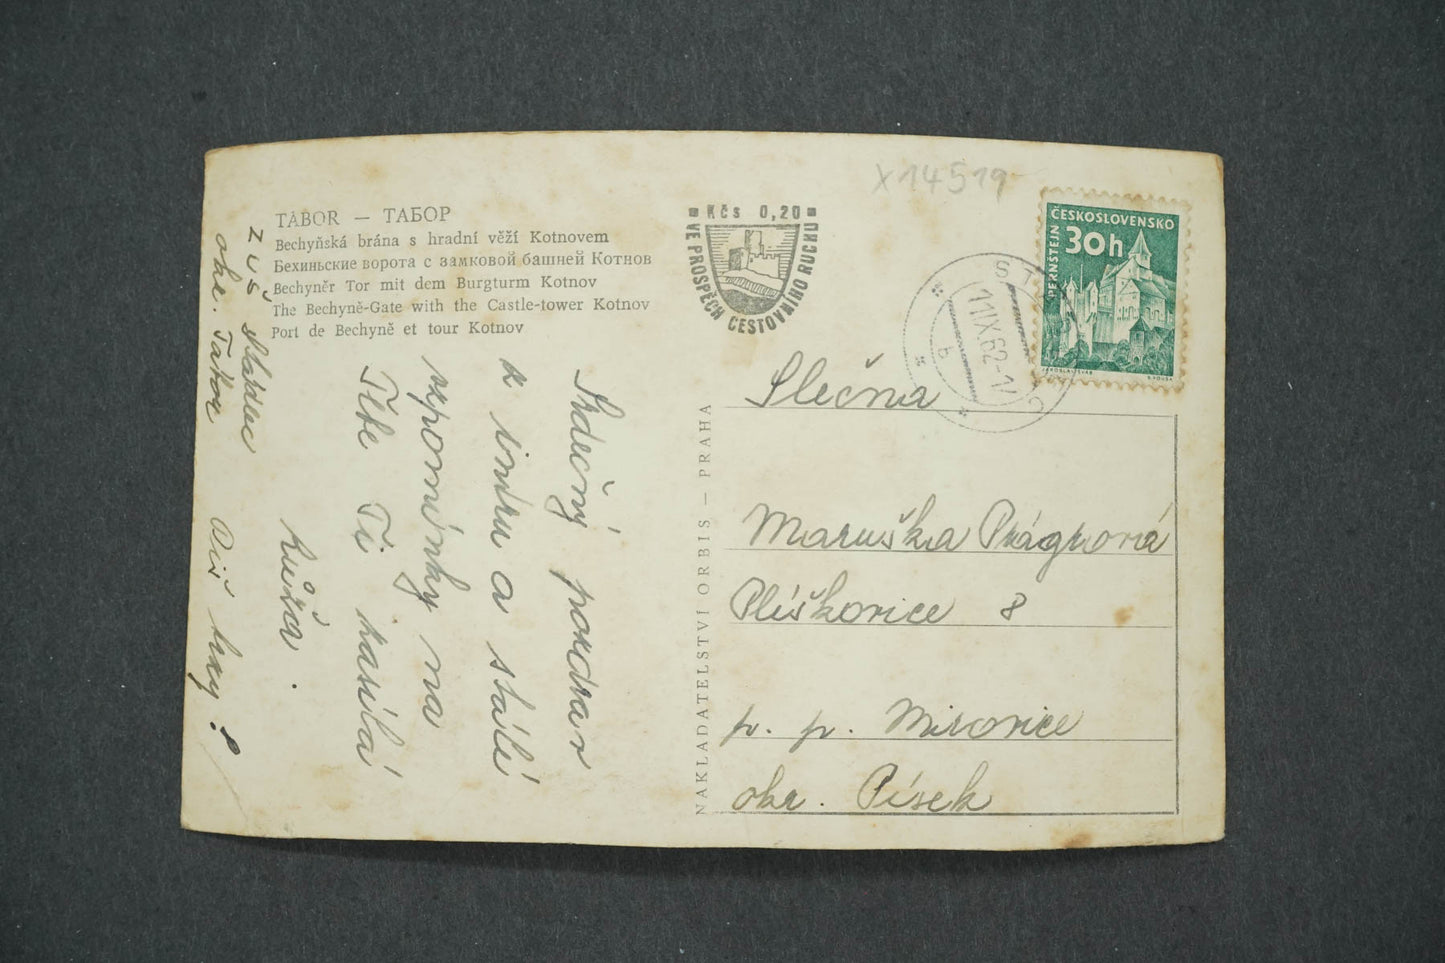 X14519
TÁBOR — ТАБОР
Bechyňská brána s hradní věží Kotnovem
Бехиньские ворота с замковой башней Котнов
Bechyněr Tor mit dem Burgturm Kotnov
The Bechyně-Gate with the Castle-tower Kotnov
Port de Bechyně et tour Kotnov
Kčs 0,20
VE PROSPĚCH CESTOVNÍHO RUCHU
ČESKOSLOVENSKO
30h
PERNŠTEJN
JAROSLAV ŠVÁB
11.IX.62-17
b
Srdečný pozdrav
z srdce a stálé
vzpomínky na
Tebe Ti zasílá
Růža.
ZDŠ Sládec
okr. Tábor
Piš hezky!
NAKLADATELSTVÍ ORBIS — PRAHA
Slečna
Maruška Prágrová
Plíškovice 8
p. p. Mirovice
okr. Písek